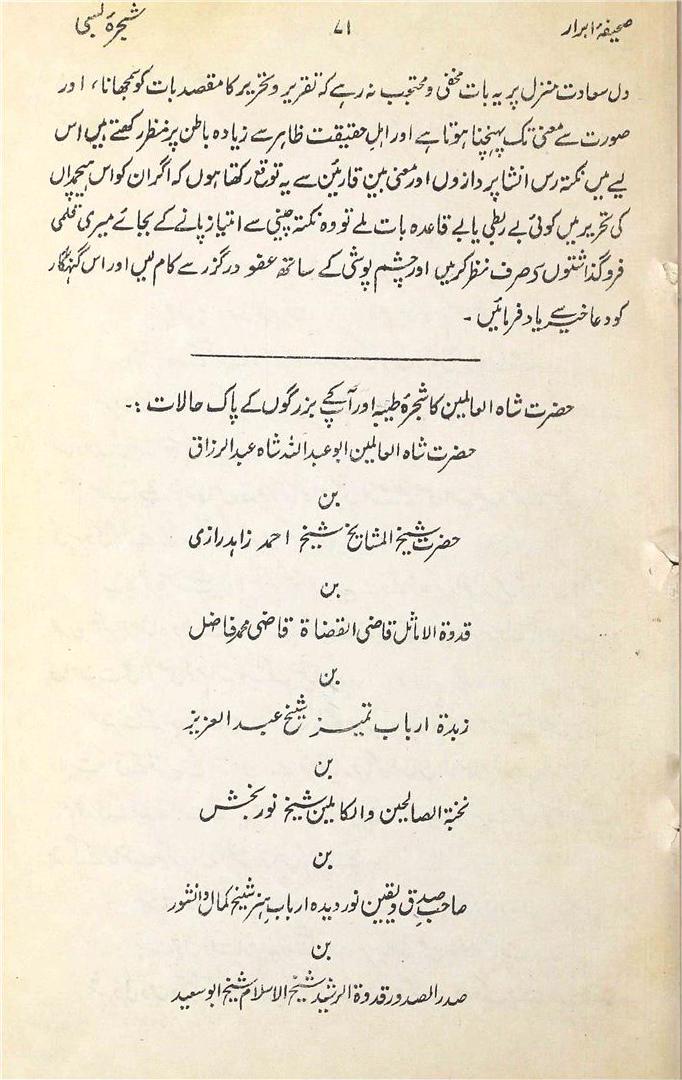 صحیفۂ ابرار ۷۱ شجرۂ نسبی
دل سعادت منزل پر یہ بات مخفی و محتجوب نہ رہے کہ تقریر و تحریر کا مقصد بات کو سمجھانا، اور
صورت سے معنیٰ تک پہنچنا ہوتا ہے اور اہلِ حقیقت ظاہر سے زیادہ باطن پر نظر رکھتے ہیں اس
لیے میں نکتہ رس انشا پردازوں اور معنی بین قارئین سے یہ توقع رکھتا ہوں کہ اگر ان کو اس ہیچمداں
کی تحریر میں کوئی بے ربطی یا بے قاعدہ بات ملے تو وہ نکتہ چینی سے امتیاز پانے کے بجائے میری قلمی
فروگذاشتوں کو صرف نظر کریں اور چشم پوشی کے ساتھ عفو درگزر سے کام لیں اور اس گنہگار
کو دعا خیر سے یاد فرمائیں ۔
حضرت شاہ العالمین کا شجرۂ طیبہ اور آپ کے بزرگوں کے پاک حالات :۔
حضرت شاہ العالمین ابو عبد اللہ شاہ عبد الرزاق
بن
حضرت شیخ المشایخ شیخ احمد زاہد رازی
بن
قدوۃ الاماثل قاضی القضاۃ قاضی محمد فاضل
بن
زبدۃ ارباب تمیز شیخ عبد العزیز
بن
نخبۃ الصالحین والکاملین شیخ نور بخش
بن
صاحب صدق و یقین نور دیدہ ارباب ہنر شیخ کمال دانشور
بن
صدر الصدور قدوۃ الرشید شیخ الاسلام شیخ ابو سعید